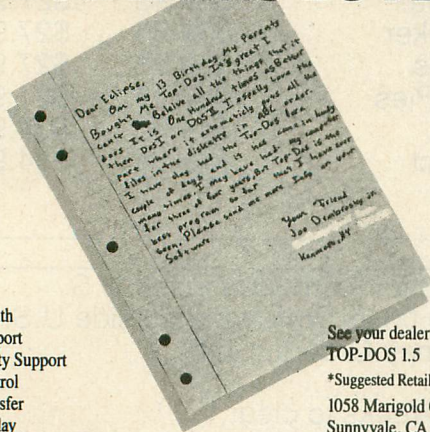 Dear Eclipse,
On my 13 Birthday My Parents
Bought Me Top-Dos. It's great I
can't Beleive all the things that it
does. It is One Hundred times as Better
then Dos I or Dos II, I espally have the
part where it automaticly puts all the
files in the diskette in ABC order.
I have only had the Top-Dos for a
couple of days and it has came in handy
many times. I may have had my computer
for three or four years, But Top-Dos is the
best program so far that I have ever
seen. Please send me more Info on your
Software
Your Friend
Joe Dombrosky Jr.
Kenmore, NY
th
port
ty Support
rol
sfer
lay
See your dealer
TOP-DOS 1.5
*Suggested Retail
1058 Marigold
Sunnyvale, CA